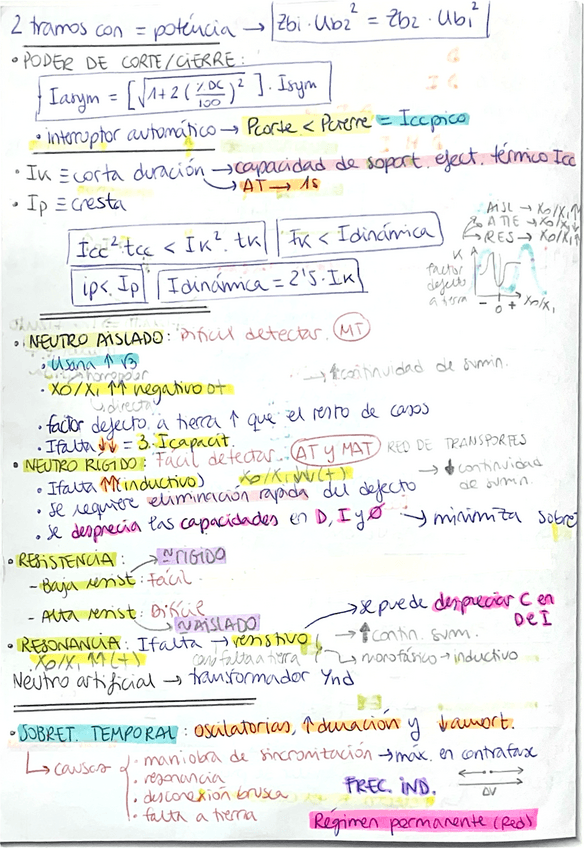 2 tramos con = potencia → Zb1 · Ub2² = Zb2 · Ub1²
• PODER DE CORTE/CIERRE:
Iasym = [√1+2(%DC/100)²] · Isym
• interruptor automático → Pcorte < Pcierre = Icc pico
• Ik ≡ corta duración → capacidad de soport. efect. térmico Icc
→ AT → 1s
• Ip ≡ cresta
AISL → X0/X1 ↑↑
ATIE → X0/X1 ↓
RES → X0/X1 ↑↑
Icc² · tcc < Ik² · tk
Ik < Idinámica
ip < Ip
Idinámica = 2'5 · Ik
K factor defecto a tierra
- 0 + X0/X1
• NEUTRO AISLADO: Difícil detectar. MT
• Usana ↑ √3
homopolar
→ ↑continuidad de sumin.
• X0/X1 ↑↑ negativo
directa
• factor defecto a tierra ↑ que el resto de casos
• Ifalta ↓↓ = 3 · Icapacit.
• NEUTRO RIGIDO: Fácil detectar. AT y MAT RED DE TRANSPORTES
• Ifalta ↑↑ (inductivo) X0/X1 ↓↓ (+) → ↓ continuidad de sumin.
• se requiere eliminación rápida del defecto
• se desprecia las capacidades en D, I y Ø → minimiza sobret
• RESISTENCIA: ≃ RÍGIDO
- Baja resist: fácil
- Alta resist: Difícil
≃ AISLADO
→ se puede despreciar C en D e I
• RESONANCIA: Ifalta → resistivo → ↑ contin. sumn.
X0/X1 ↑↑ (+) con falta a tierra → monofásico → inductivo
Neutro artificial → transformador Ynd
• SOBRET. TEMPORAL: oscilatorias, ↑duración y ↓amort.
→ causas • maniobra de sincronización → máx. en contrafase
• resonancia
• desconexión brusca
• falta a tierra
FREC. IND.
ΔV
Régimen permanente (Red)